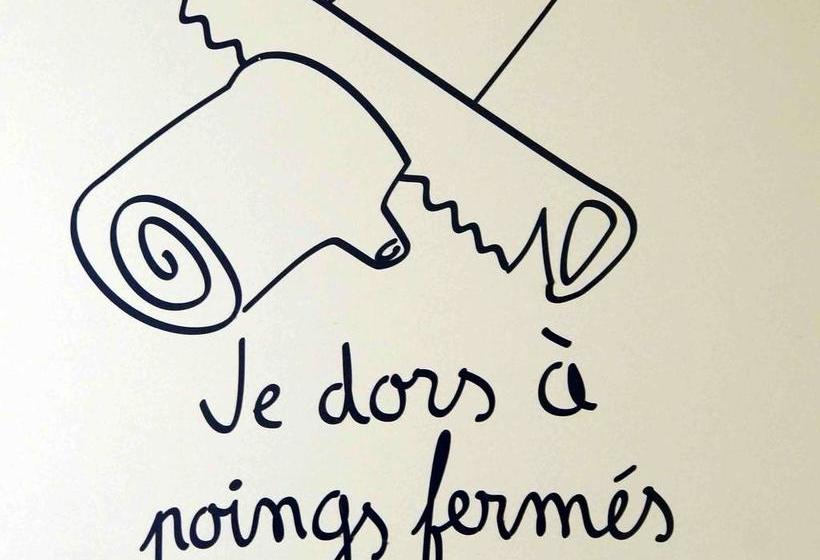 Je dors à
poings fermés